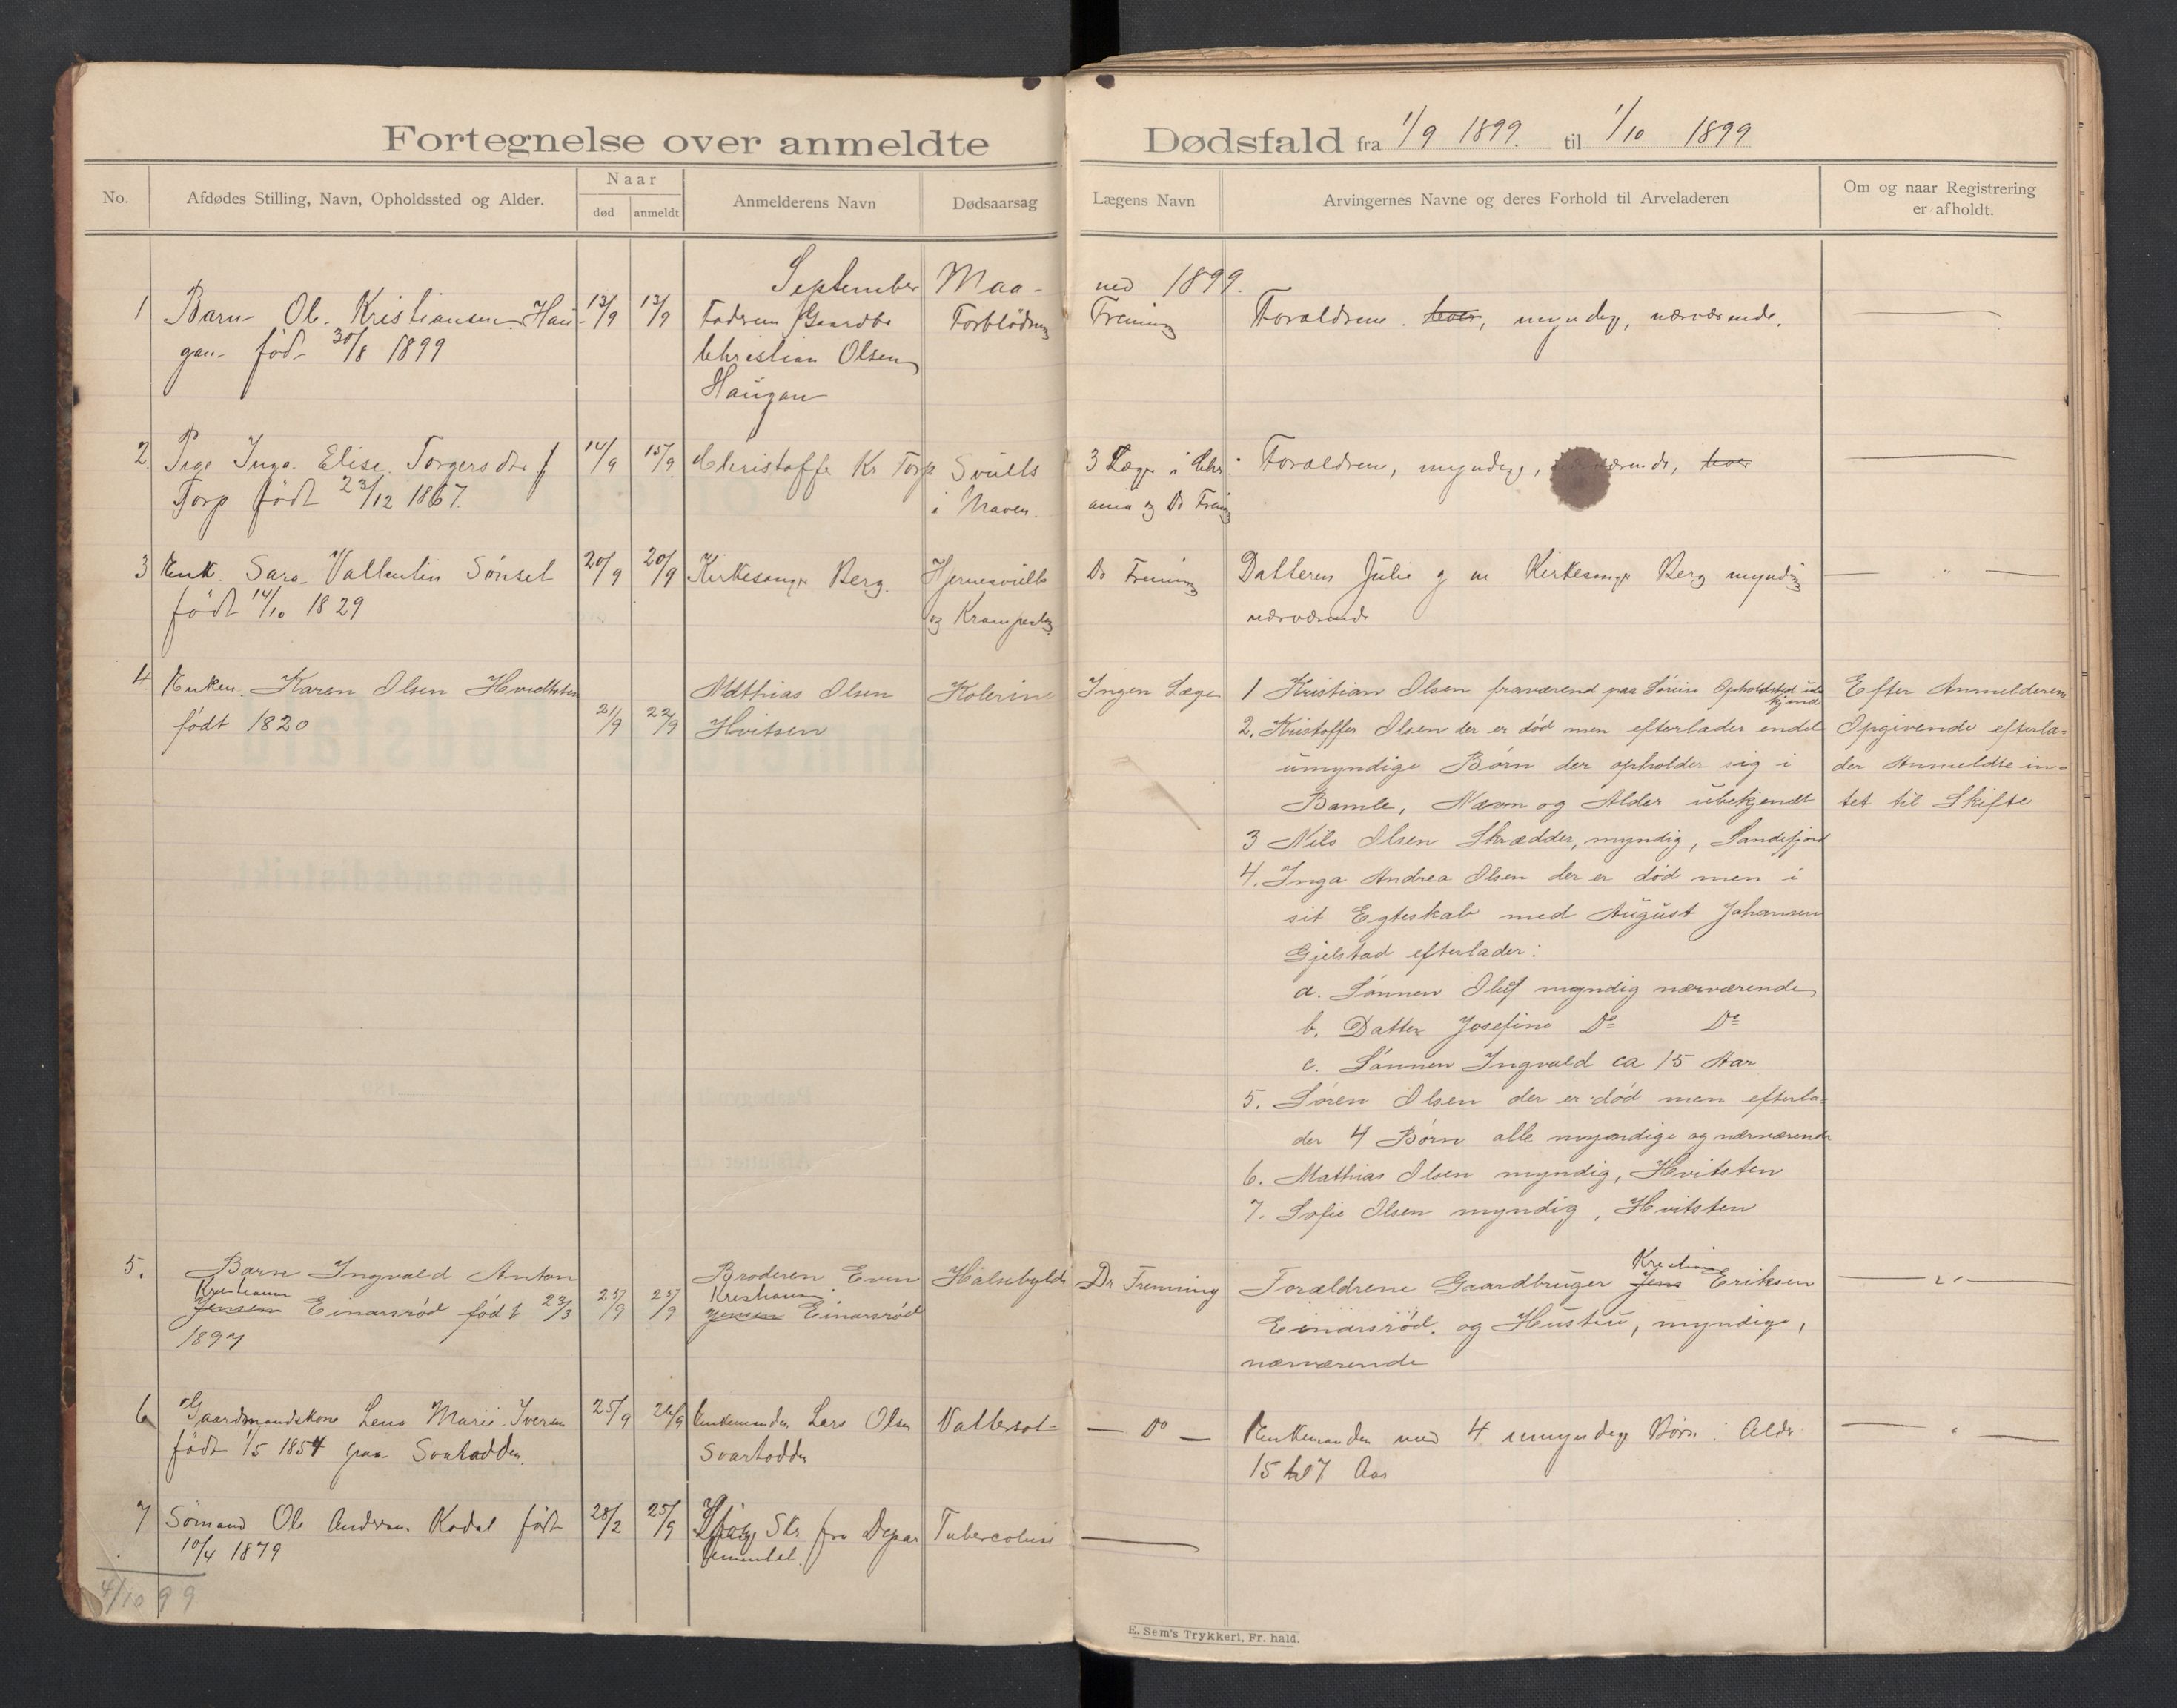 Fortegnelse over anmeldte Dødsfald fra 1/9 1899. til 1/10 1899
No.
Afdødes Stilling, Navn, Opholdssted og Alder.
Naar
død
anmeldt
Anmelderens Navn
Dødsaarsag
Lægens Navn
Arvingernes Navne og deres Forhold til Arveladeren
Om og naar Registrering
er afholdt.
September Maa-
ned 1899.
1 Barn Ole Kristiansen Hau-
gan født 30/8 1899
13/9 13/9
Faderen Gaardbr
Christian Olsen
Haugan
Forblødning
Frenning
Forældrene, myndig, nærværende.
2. Pige Inga Elise Torgersdtr
Torp født 23/12 1867.
14/9 15/9
Christoffe Kr Torp
Svulls
i Maven.
3 Læger i Chri-
ania og Dr Frenning
Forældrene, myndige,
3 Enk. Sara Vallentin Sönset
født 14/10 1829
20/9 20/9
Kirkesanger Berg.
Hjernesvulls
og Krampe
Dr Frenning
Datteren Julie g m Kirkesanger Berg myndig
nærværende
— " —
4 Enken. Karen Olsen Hvidtsten
født 1820
21/9 22/9
Matthias Olsen
Hvitsen
Kolerine
Ingen Læge
1 Kristian Olsen fraværend paa Søreise Opholdsted ube
kjendt
2. Kristoffer Olsen der er död men efterlader endel
umyndige Børn der opholder sig i
Bamle, Navn og Alder ubekjendt
3 Nils Olsen Skrædder, myndig, Sandefjord
4. Inga Andrea Olsen der er död men i
sit Egteskab med August Johansen
Gjelstad efterlader:
a. Sønnen Oluf myndig nærværende
b. Datter Josefine Do Do
c. Sønnen Ingvald ca 15 Aar
5. Søren Olsen der er död men efterla-
der 4 Børn alle myndige og nærværende
6. Mathias Olsen myndig, Hvitsten
7. Sofie Olsen myndig, Hvitsten
Efter Anmelderens
Opgivende efterla-
der Anmeldte in-
tet til Skifte
5. Barn Ingvald Anton
Kristiansen
Jensen Einarsrød født 23/3
1897
25/9 25/9
Broderen Even
Kristiansen
Jensen Einarsrød
Halsebyld
Dr Frenning
Kristian
Forældrene Gaardbruger Jens Eriksen
Einarsrød. og Hustru, myndige,
nærværende
— " —
6 Gaardmandskone Lena Marie Iversen
født 1/5 1854 paa Svartodden.
25/9 26/9
Enkemanden Lars Olsen
Svartodden
Vattersot
— Do —
Enkemanden med 4 umyndige Børn i Alder
15 til 7 Aar
— " —
7 Sømand Ole Andersen Kodal født
10/4 1879
28/2 25/9
Skr fra Depar
tementet.
Tubercolusi
4/10 99
E. Sem's Trykkeri, Fr. hald.